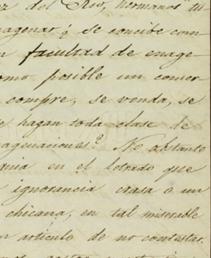 del Rio, hermanos
agenar; ó se concibe con
n facultad de enage
omo posible un comer
compre, se venda, se
e hagan toda clase de
aguaciones? No obstante
en el letrado que
ignorancia crasa o un
chicana, en tal miserable
n articulo de no contestar.